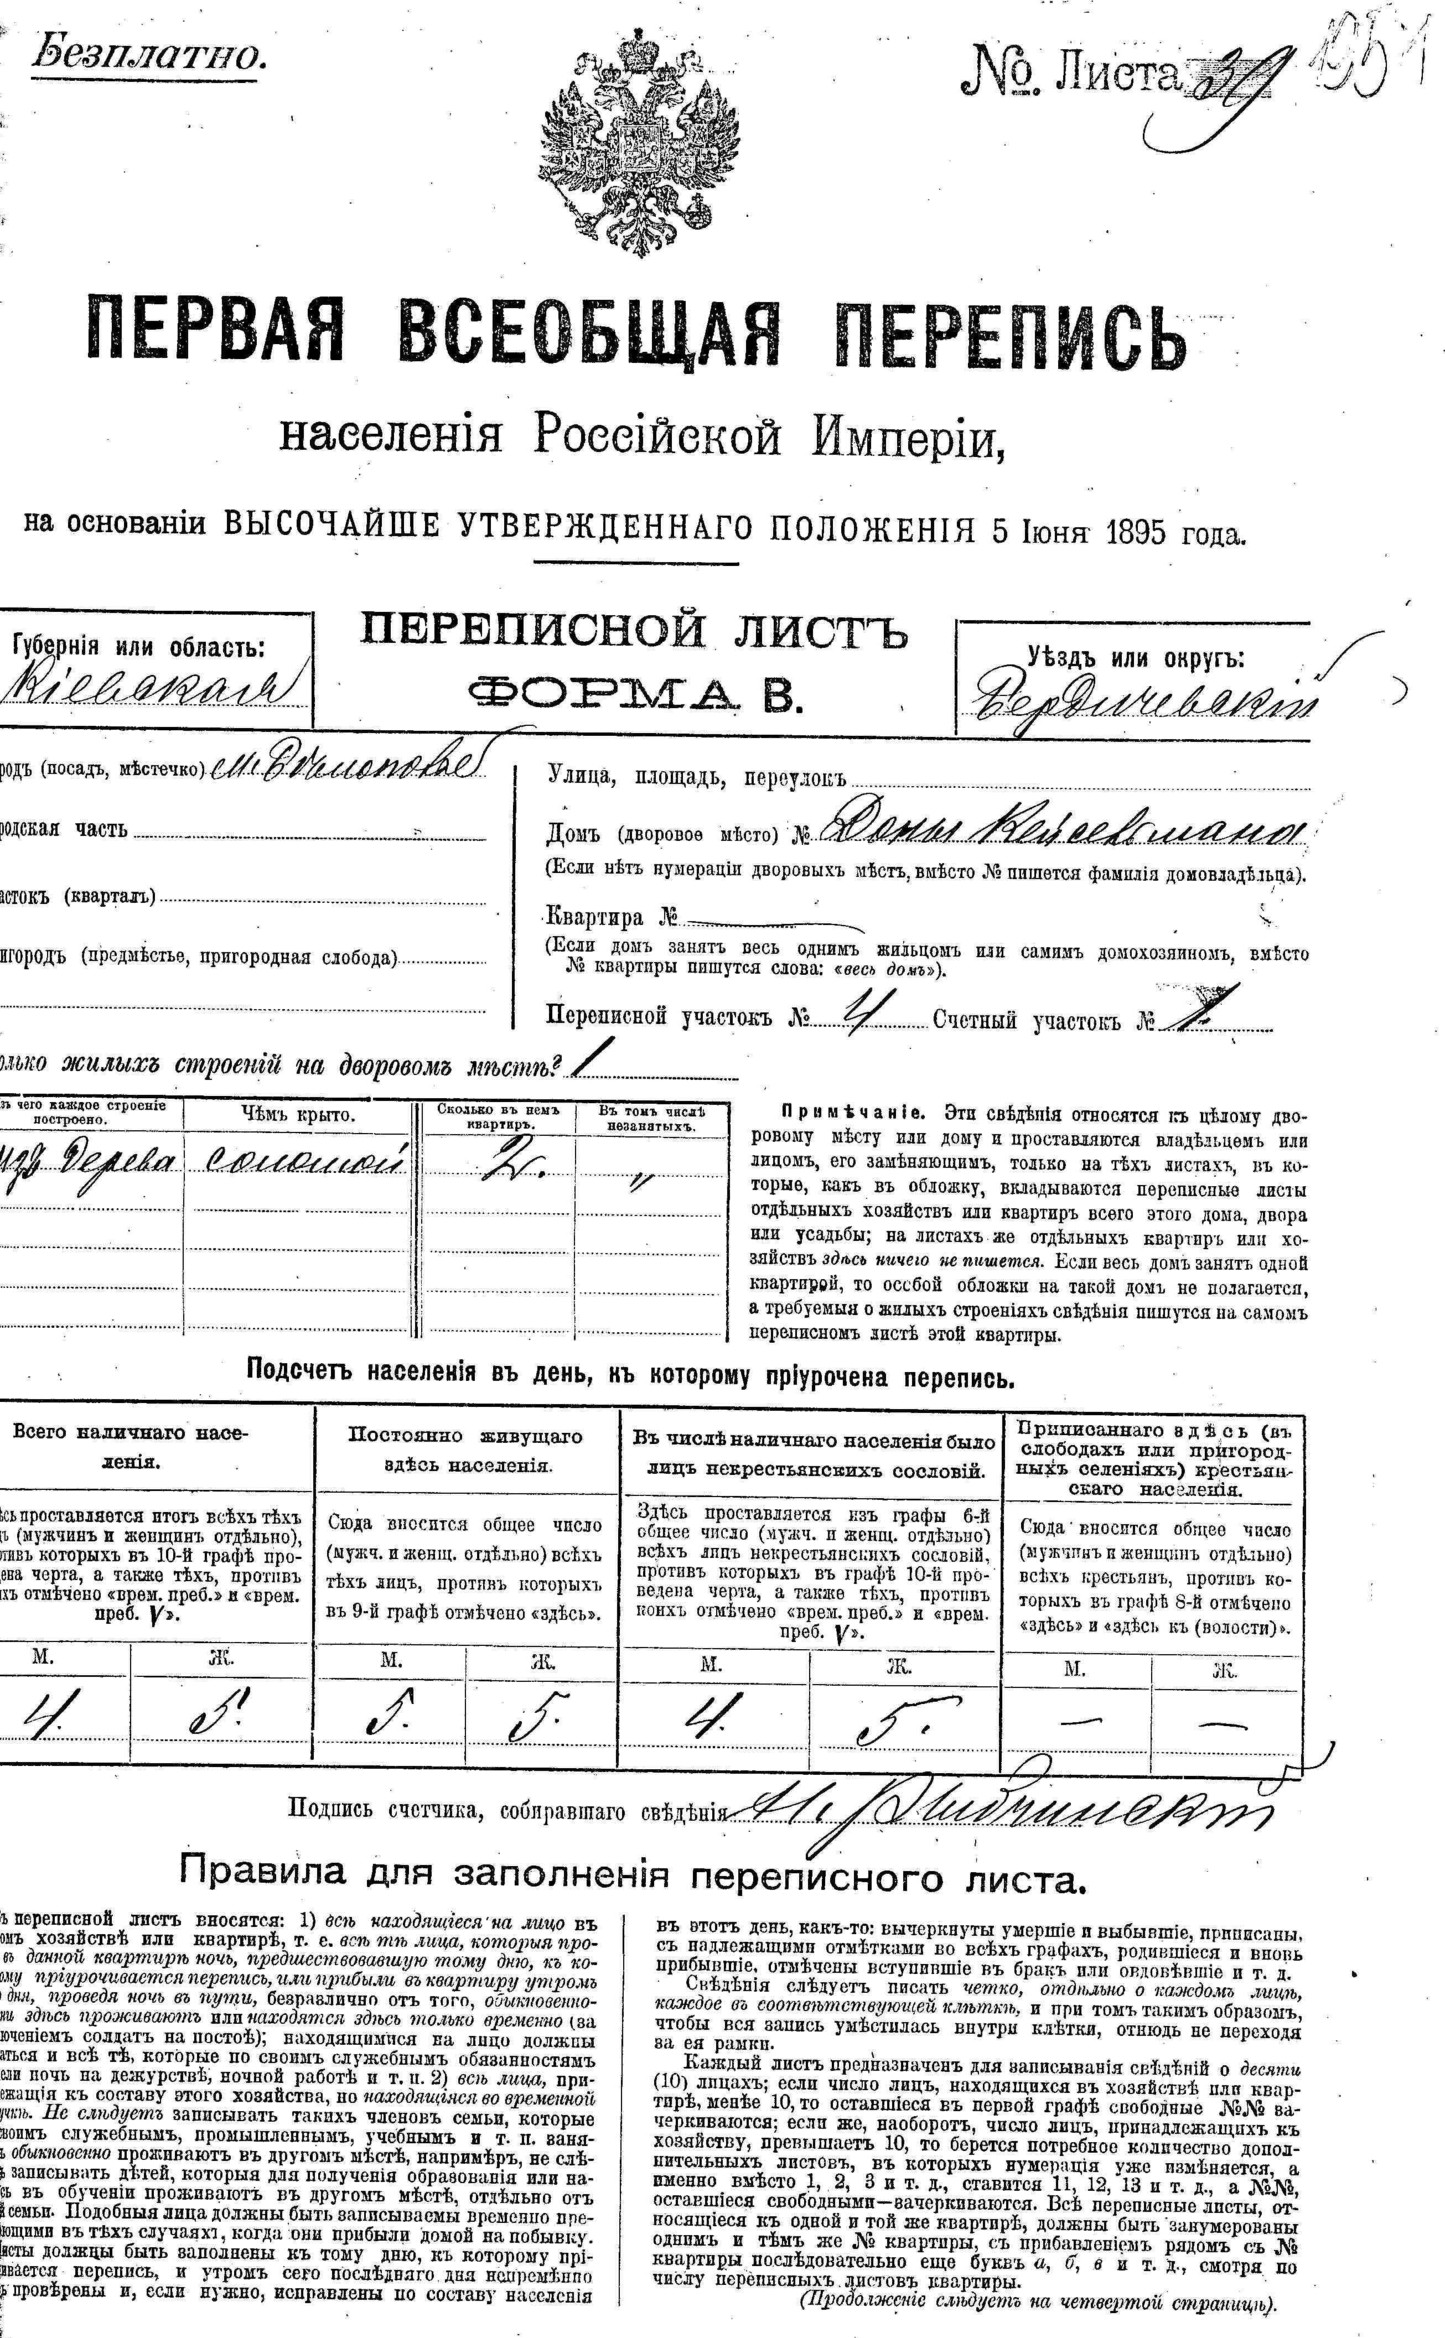 Безплатно.
№. Листа 39
1051
ПЕРВАЯ ВСЕОБЩАЯ ПЕРЕПИСЬ
населенія Россійской Имперіи,
на основаніи ВЫСОЧАЙШЕ УТВЕРЖДЕННАГО ПОЛОЖЕНІЯ 5 Іюня 1895 года.
ПЕРЕПИСНОЙ ЛИСТЪ
ФОРМА В.
Губернія или область:
Кіевская
Уѣздъ или округъ:
Бердичевскій
родъ (посадъ, мѣстечко) м.
родская часть
астокъ (кварталъ)
игородъ (предмѣстье, пригородная слобода)
Улица, площадь, переулокъ
Домъ (дворовое мѣсто) №
(Если нѣтъ нумераціи дворовыхъ мѣстъ, вмѣсто № пишется фамилія домовладѣльца).
Квартира №
(Если домъ занятъ весь однимъ жильцомъ или самимъ домохозяиномъ, вмѣсто
№ квартиры пишутся слова: «весь домъ»).
Переписной участокъ № 4 Счетный участокъ № 1
олько жилыхъ строеній на дворовомъ мѣстѣ? 1
ъ чего каждое строеніе
построено.
Чѣмъ крыто.
Сколько въ немъ
квартиръ.
Въ томъ числѣ
незанятыхъ.
изъ дерева соломой 2. "
Примѣчаніе. Эти свѣдѣнія относятся къ цѣлому дво-
ровому мѣсту или дому и проставляются владѣльцемъ или
лицомъ, его замѣняющимъ, только на тѣхъ листахъ, въ ко-
торые, какъ въ обложку, вкладываются переписные листы
отдѣльныхъ хозяйствъ или квартиръ всего этого дома, двора
или усадьбы; на листахъ же отдѣльныхъ квартиръ или хо-
зяйствъ здѣсь ничего не пишется. Если весь домъ занятъ одной
квартирой, то особой обложки на такой домъ не полагается,
а требуемыя о жилыхъ строеніяхъ свѣдѣнія пишутся на самомъ
переписномъ листѣ этой квартиры.
Подсчетъ населенія въ день, къ которому пріурочена перепись.
Всего наличнаго насе-
ленія.
сь проставляется итогъ всѣхъ тѣхъ
ъ (мужчинъ и женщинъ отдѣльно),
тивъ которыхъ въ 10-й графѣ про-
ева черта, а также тѣхъ, противъ
хъ отмѣчено «врем. преб.» и «врем.
преб. V».
Постоянно живущаго
здѣсь населенія.
Сюда вносится общее число
(мужч. и женщ. отдѣльно) всѣхъ
тѣхъ лицъ, противъ которыхъ
въ 9-й графѣ отмѣчено «здѣсь».
Въ числѣ наличнаго населенія было
лицъ некрестьянскихъ сословій.
Здѣсь проставляется изъ графы 6-й
общее число (мужч. и женщ. отдѣльно)
всѣхъ лицъ некрестьянскихъ сословій,
противъ которыхъ въ графѣ 10-й про-
ведена черта, а также тѣхъ, противъ
коихъ отмѣчено «врем. преб.» и «врем.
преб. V».
Приписаннаго здѣсь (въ
слободахъ или пригород-
ныхъ селеніяхъ) крестьян-
скаго населенія.
Сюда вносится общее число
(мужчинъ и женщинъ отдѣльно)
всѣхъ крестьянъ, противъ ко-
торыхъ въ графѣ 8-й отмѣчено
«здѣсь» и «здѣсь къ (волости)».
М. Ж. М. Ж. М. Ж. М. Ж.
4. 5. 5. 5. 4. 5. — —
Подпись счетчика, собиравшаго свѣдѣнія
Правила для заполненія переписного листа.
ъ переписной листъ вносятся: 1) всѣ находящіеся на лицо въ
омъ хозяйствѣ или квартирѣ, т. е. всѣ тѣ лица, которыя про-
въ данной квартирѣ ночь, предшествовавшую тому дню, къ ко-
ому пріурочивается перепись, или прибыли въ квартиру утромъ
дня, проведя ночь въ пути, безразлично отъ того, обыкновенно-
ни здѣсь проживаютъ или находятся здѣсь только временно (за
юченіемъ солдатъ на постоѣ); находящимися на лицо должны
аться и всѣ тѣ, которые по своимъ служебнымъ обязанностямъ
ели ночь на дежурствѣ, ночной работѣ и т. п. 2) всѣ лица, при-
ежащія къ составу этого хозяйства, но находящіяся во временной
учкѣ. Не слѣдуетъ записывать такихъ членовъ семьи, которые
воимъ служебнымъ, промышленнымъ, учебнымъ и т. п. заня-
ъ обыкновенно проживаютъ въ другомъ мѣстѣ, напримѣръ, не слѣ-
ъ записывать дѣтей, которыя для полученія образованія или на-
сь въ обученіи проживаютъ въ другомъ мѣстѣ, отдѣльно отъ
семьи. Подобныя лица должны быть записываемы временно пре-
ающими въ тѣхъ случаяхъ, когда они прибыли домой на побывку.
исты должны быть заполнены къ тому дню, къ которому прі-
ивается перепись, и утромъ сего послѣдняго дня непремѣнно
ь провѣрены и, если нужно, исправлены по составу населенія
въ этотъ день, какъ-то: вычеркнуты умершіе и выбывшіе, приписаны,
съ надлежащими отмѣтками во всѣхъ графахъ, родившіеся и вновь
прибывшіе, отмѣчены вступившіе въ бракъ или овдовѣвшіе и т. д.
Свѣдѣнія слѣдуетъ писать четко, отдѣльно о каждомъ лицѣ,
каждое въ соотвѣтствующей клѣткѣ, и при томъ такимъ образомъ,
чтобы вся запись умѣстилась внутри клѣтки, отнюдь не переходя
за ея рамки.
Каждый листъ предназначенъ для записыванія свѣдѣній о десяти
(10) лицахъ; если число лицъ, находящихся въ хозяйствѣ или квар-
тирѣ, менѣе 10, то оставшіеся въ первой графѣ свободные №№ за-
черкиваются; если же, наоборотъ, число лицъ, принадлежащихъ къ
хозяйству, превышаетъ 10, то берется потребное количество допол-
нительныхъ листовъ, въ которыхъ нумерація уже измѣняется, а
именно вмѣсто 1, 2, 3 и т. д., ставится 11, 12, 13 и т. д., а №№,
оставшіеся свободными—зачеркиваются. Всѣ переписные листы, от-
носящіеся къ одной и той же квартирѣ, должны быть занумерованы
однимъ и тѣмъ же № квартиры, съ прибавленіемъ рядомъ съ №
квартиры послѣдовательно еще буквъ а, б, в и т. д., смотря по
числу переписныхъ листовъ квартиры.
(Продолженіе слѣдуетъ на четвертой страницѣ).